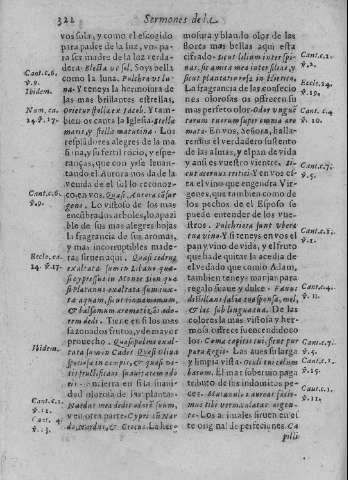 322
Sermones del.
vos sola, y como el escogido
para padre de la luz, vos pa-
ra ser madre de la luz verda-
dera. Electa ut sol, Soys bella
como la luna. Pulchra ut lu-
na. Y teneys la hermosura de
las mas brillantes estrellas,
Orietur stella ex Iacob. Y tam-
bien os canta la Iglesia. Stella
maris, y stella matutina. Los
resplãdores alegres de la ma-
ñana
y su fertil rocio, y espe-
ranças, que con
el Aurora nos da de la
venida de el sol lo reconoz-
co en vos. Quasi Aurora cõsur-
gens. Lo vistoso de los mas
encũbrados arboles, lo apazi
ble de sus mas alegres hojas
la fragrancia de sus aromas,
y mas incorruptibles made-
ras siruen aqui. Quasi cedrus
exaltata sum in Libano qua-
si cypressus in Monte Sion qua
si Platanus exaltata sum iux-
ta aquam, sicut cinamomum,
& balsamum aromatizãs odo-
rem dedi. Tiene en si los mas
sazonados frutos, y de mayor
prouecho. Quasi palma exal-
tata sum in Cades. Quasi oliua
speciosa in campis, & quasi vi-
tis fructificaui suauitatem odo
ris. encierra en si la suaui
dad olorosa de las plantas.
Nardus mea dedit odorẽ suum,
y en otra parte. Cyprus cũ Nar-
do, Nardus, & Crocus. La her-
mosura y blando olor de las
flores mas bellas aqui esta
cifrado. Sicut lilium inter spi-
nas, sic amica mea inter filias, y
sicut plantatio rosæ in Hiericho.
La fragrancia de las confecio
nes olorosos os ofrescen su
mas perfeto olor. Odor vnguẽ
torum tuorum super omnia aro
mata. En vos, Señora, halla-
remos el verdadero sustento
de las almas, y el pan de vida
y ansi es vuestro vientre. Si-
cut aceruus tritici. Y en vos es
ta el vino que engendra Vir-
genes, que tambien como de
los pechos de el Esposo se
puede entender de los vue-
stros. Pulchriora sunt vbera
tua vino. Y si teneys en vos el
pan y vino de vida, y el fruto
que ha de quitar la acedia de
el vedado que comio Adam,
tambien teneys manjar para
regalo suaue y dulce. Fauus
distillans labia tua sponsa, mel,
& lac sub lingua tua. De las
colores la mas vistosa y her-
mosa ofresce fuscendidoco
los. Coma capitis tui, sicut pur
pura Regis. Las aues su larga
y limpia vista. Oculi tui colum
barum. El mar soberuio paga
tributo de sus indomitos pe-
ces. Murenulas aureas facie-
mus tibi vermiculatas argen-
to. Los animales siruen en es
te original de perfeciones. Ca
pilli
Cant. c. 6.
v. 9.
Ibidem.
Num. ca.
24. v. 17.
Cant. c. 6.
v. 9.
Eccle. ca.
24. v. 17.
Ibidem.
Cant. c. 1.
v. 12.
Cant. 4.
v. 13.
Cant. c. 2.
v. 2.
Eccle. 24.
v. 19.
Cant. c. 4
v. 10.
Cant. c. 7.
v. 5.
Cant. c. 1.
v. 2.
Cant. c. 4.
v. 11.
Cant. c. 7.
v. 5.
Cant. c. 1.
v. 15.
Cant. c. 1.
v. 11.